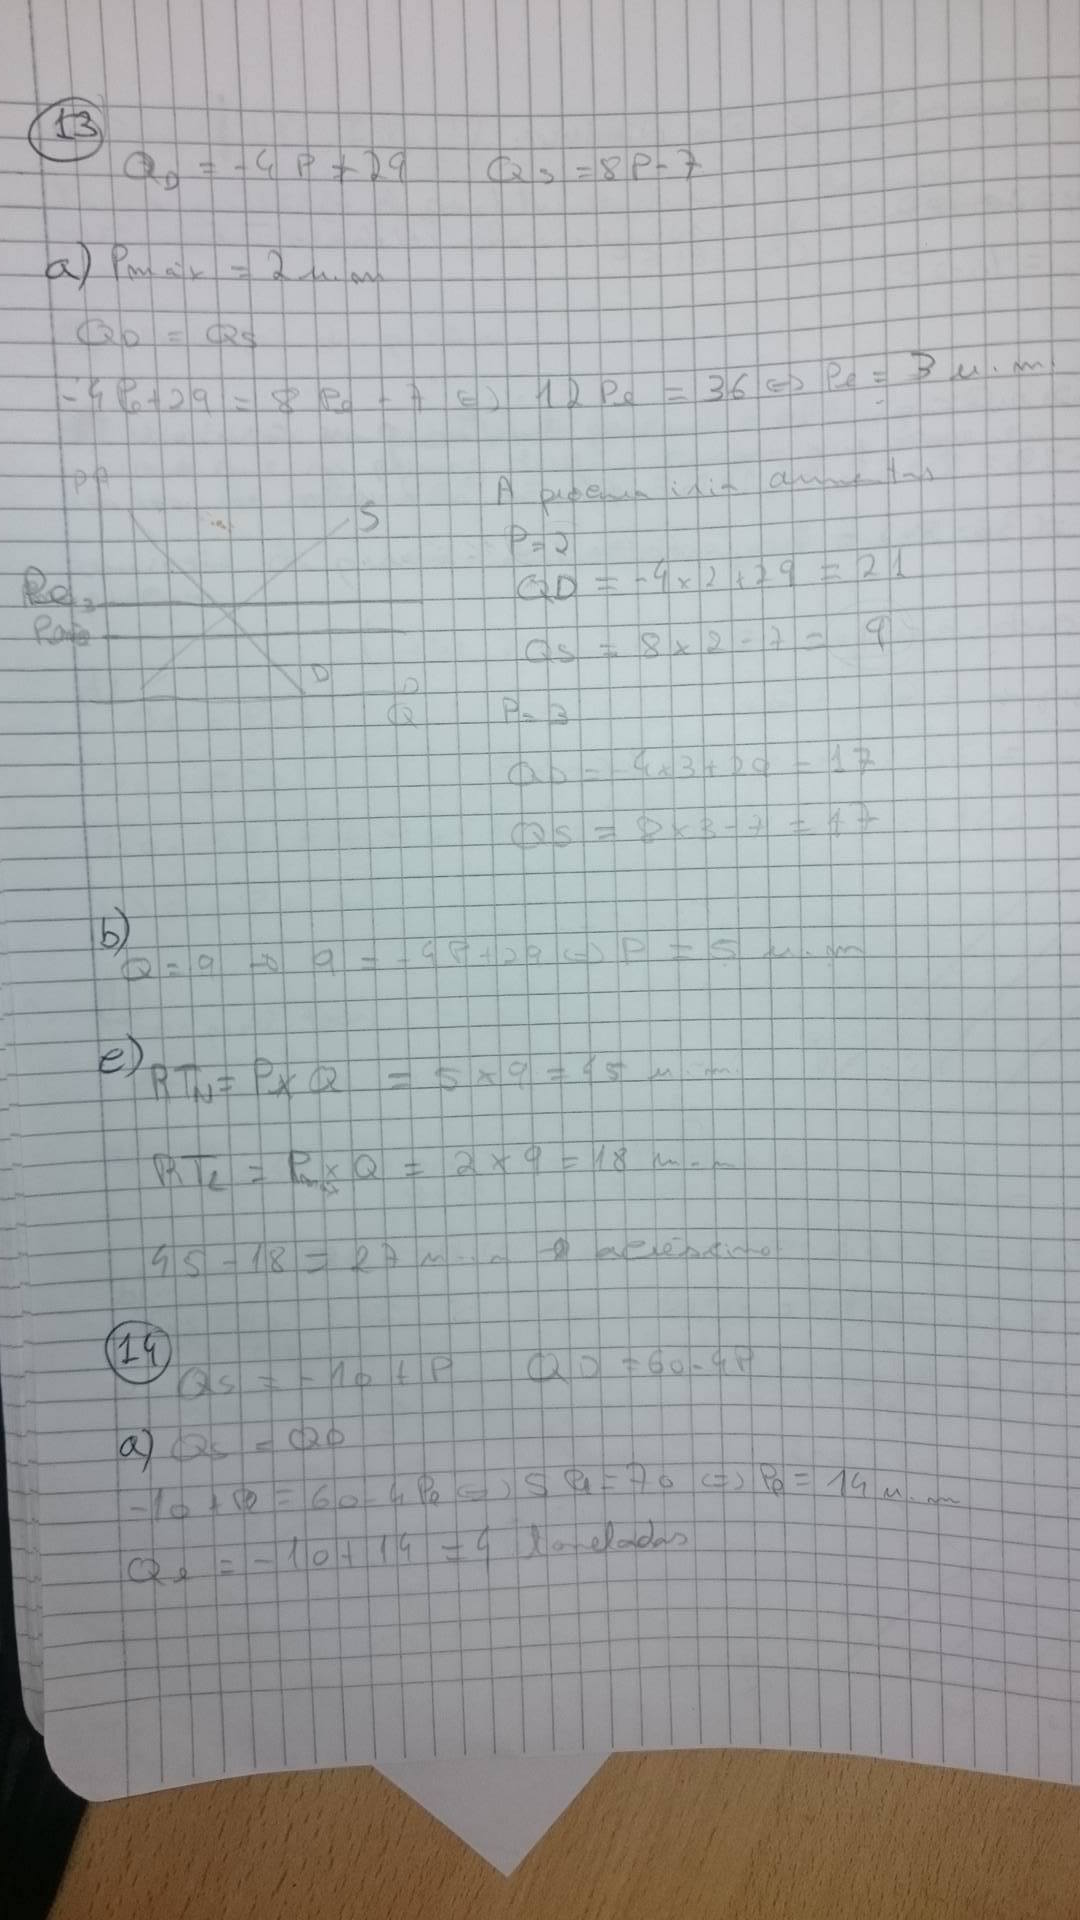 13
QD = -4P + 29 QS = 8P - 7
a) Pmáx = 2 u.m
QD = QS
-4Pe + 29 = 8Pe - 7 <=> 12Pe = 36 <=> Pe = 3 u.m.
P
S
A iria
P = 2
Pe
QD = -4 x 2 + 29 = 21
QS = 8 x 2 - 7 = 9
D
Q
P = 3
QD = -4 x 3 + 29 = 17
QS = 8 x 3 - 7 = 17
b)
Q = 9 → 9 = -4P + 29 <=> P = 5 u.m
c) RTN = P x Q = 5 x 9 = 45 u.m.
RTL = Pmáx x Q = 2 x 9 = 18 u.m
45 - 18 = 27 u.m → acréscimo
14
QS = -10 + P QD = 60 - 4P
a) QS = QD
-10 + Pe = 60 - 4Pe <=> 5Pe = 70 <=> Pe = 14 u.m
Qe = -10 + 14 = 4 toneladas